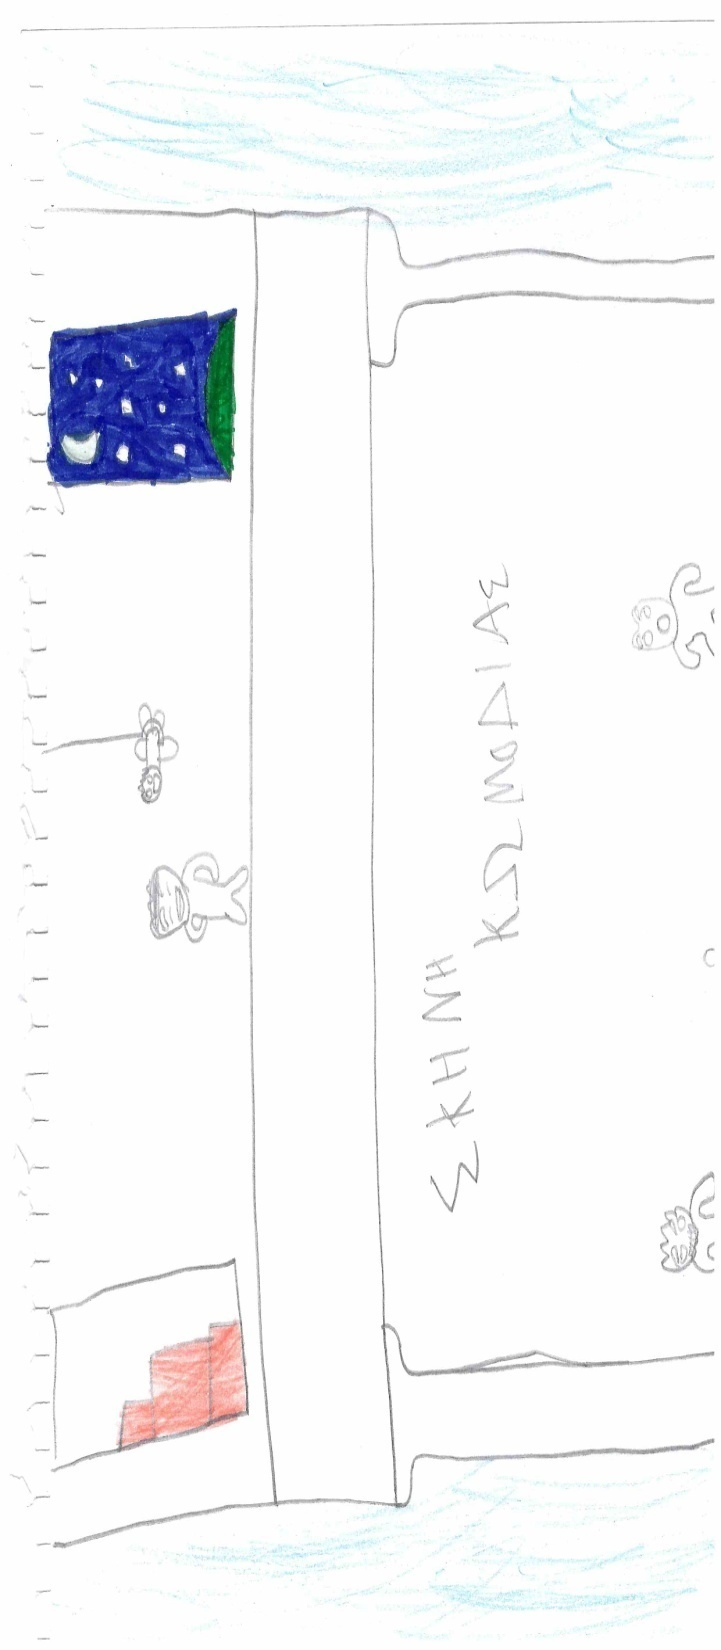 ΣΚΗΝΗ
ΚΩΜΩΔΙΑΣ